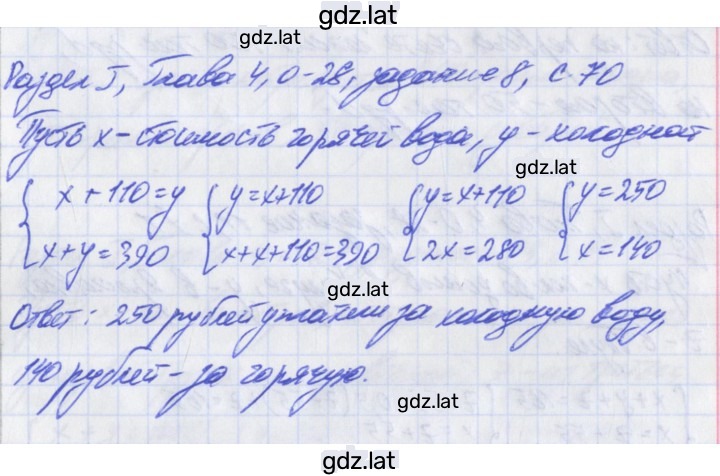 gdz.lat
gdz.lat
Раздел I, Глава 4, О-28, задание 8, с. 70
Пусть x - стоимость горячей воды, y - холодной
gdz.lat gdz.lat
{ x + 110 = y { y = x + 110 { y = x + 110 { y = 250
x + y = 390 x + x + 110 = 390 2x = 280 x = 140
gdz.lat
Ответ: 250 рублей уплатили за холодную воду,
140 рублей - за горячую.
gdz.lat
gdz.lat